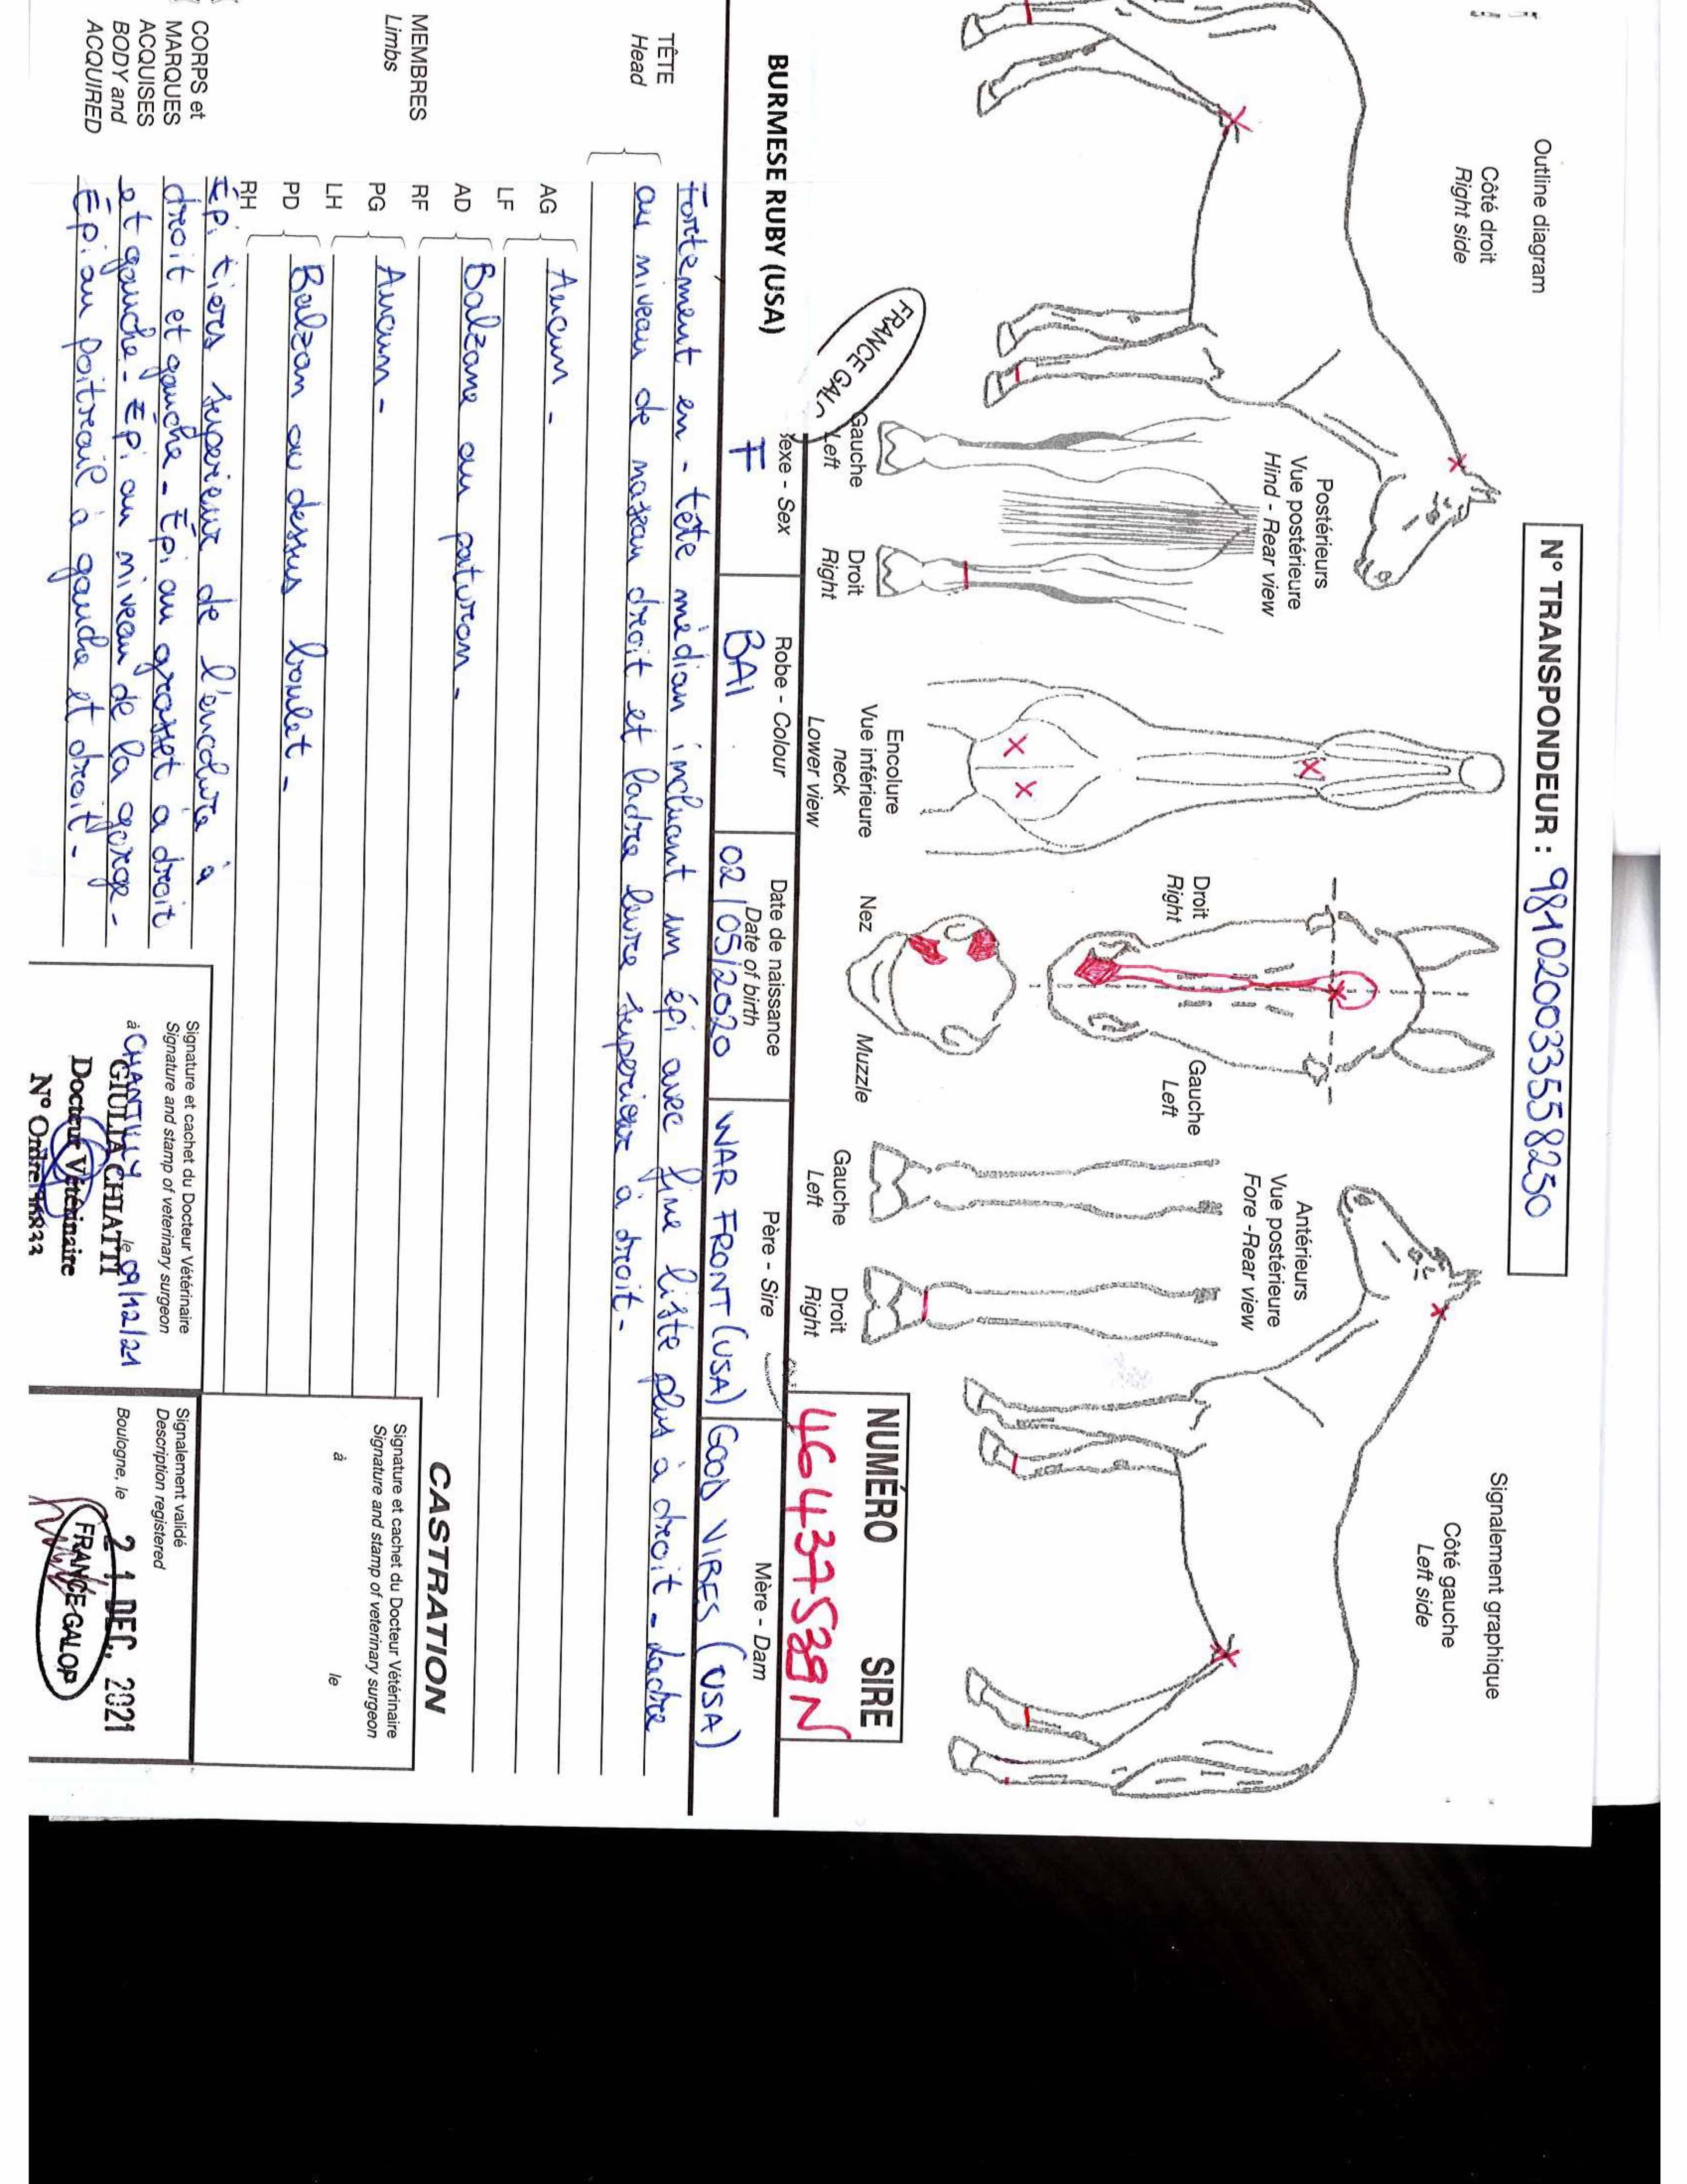 Outline diagram
N° TRANSPONDEUR : 981020033558250
Signalement graphique
Côté droit
Right side
Côté gauche
Left side
Postérieurs
Vue postérieure
Hind - Rear view
Droit
Right
Gauche
Left
Antérieurs
Vue postérieure
Fore -Rear view
Gauche
Left
Droit
Right
Encolure
Vue inférieure
neck
Lower view
Nez
Muzzle
Gauche
Left
Droit
Right
NUMÉRO SIRE
46437538N
FRANCE GAL
BURMESE RUBY (USA)
Sexe - Sex
F
Robe - Colour
BAI
Date de naissance
Date of birth
02/05/2020
Père - Sire
WAR FRONT (USA)
Mère - Dam
GOOD VIBES (USA)
TÊTE
Head
Fortement en - tête médian incluant un épi avec fine liste plus à droit - Ladre
au niveau de naseau droit et ladre levre superieur à droit -
MEMBRES
Limbs
AG
LF
Aucun -
AD
RF
Balzane au paturon -
PG
LH
Aucun -
PD
RH
Balzan au dessus boulet -
CORPS et
MARQUES
ACQUISES
BODY and
ACQUIRED
Épi tiers superieur de l'encolure à
droit et gauche - Épi au grasset à droit
et gauche - Épi au niveau de la gorge -
Épi au poitrail à gauche et droit -
CASTRATION
Signature et cachet du Docteur Vétérinaire
Signature and stamp of veterinary surgeon
à le
Signature et cachet du Docteur Vétérinaire
Signature and stamp of veterinary surgeon
à CHANTILLY le 09/12/21
GIULIA CHIATTI
Docteur Vétérinaire
N° Ordre
Signalement validé
Description registered
Boulogne, le 21 DEC. 2021
FRANCE GALOP